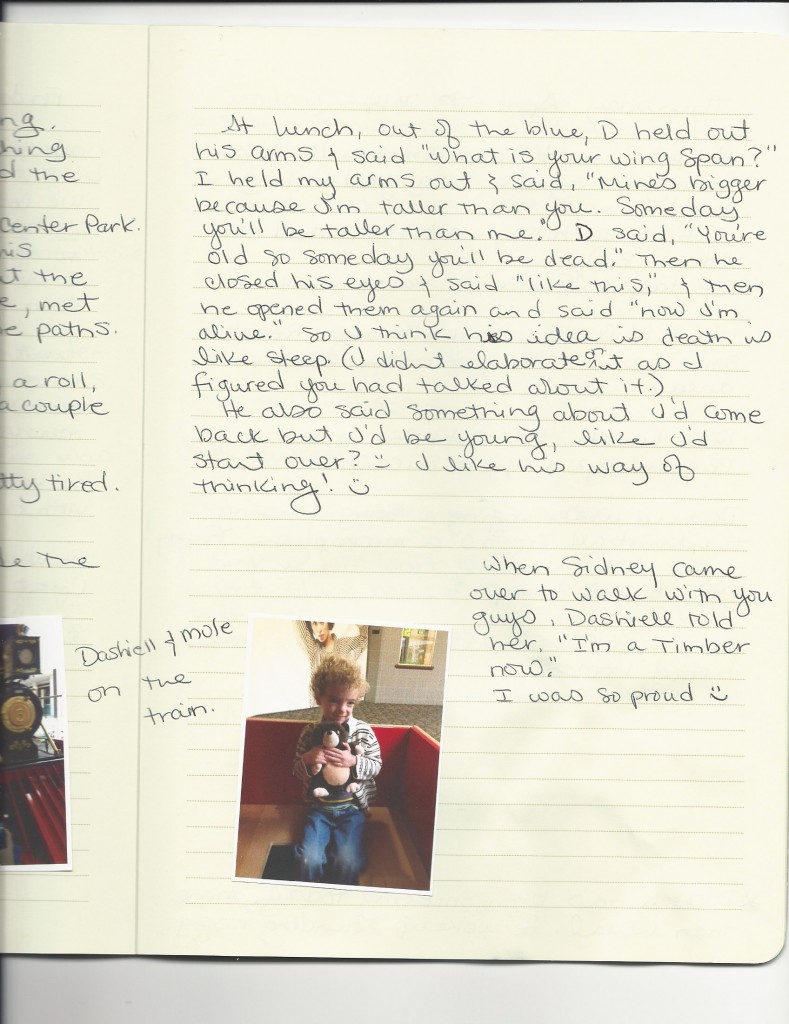 ng.
hing
d the
Center Park.
his
t the
e, met
e paths.
a roll,
a couple
tty tired.
de the
At lunch, out of the blue, D held out
his arms & said "What is your wing span?"
I held my arms out & said, "Mine's bigger
because I'm taller than you. Someday
you'll be taller than me." D said, "You're
old so someday you'll be dead." Then he
closed his eyes & said "like this," & then
he opened them again and said "now I'm
alive." So I think his idea is death is
like sleep. (I didn't elaborate on it as I
figured you had talked about it.)
He also said something about I'd come
back but I'd be young, like I'd
start over? I like his way of
thinking!
When Sidney came
over to walk with you
guys, Dashiell told
her, "I'm a Timber
now."
I was so proud
Dashiell & mole
on the
train.